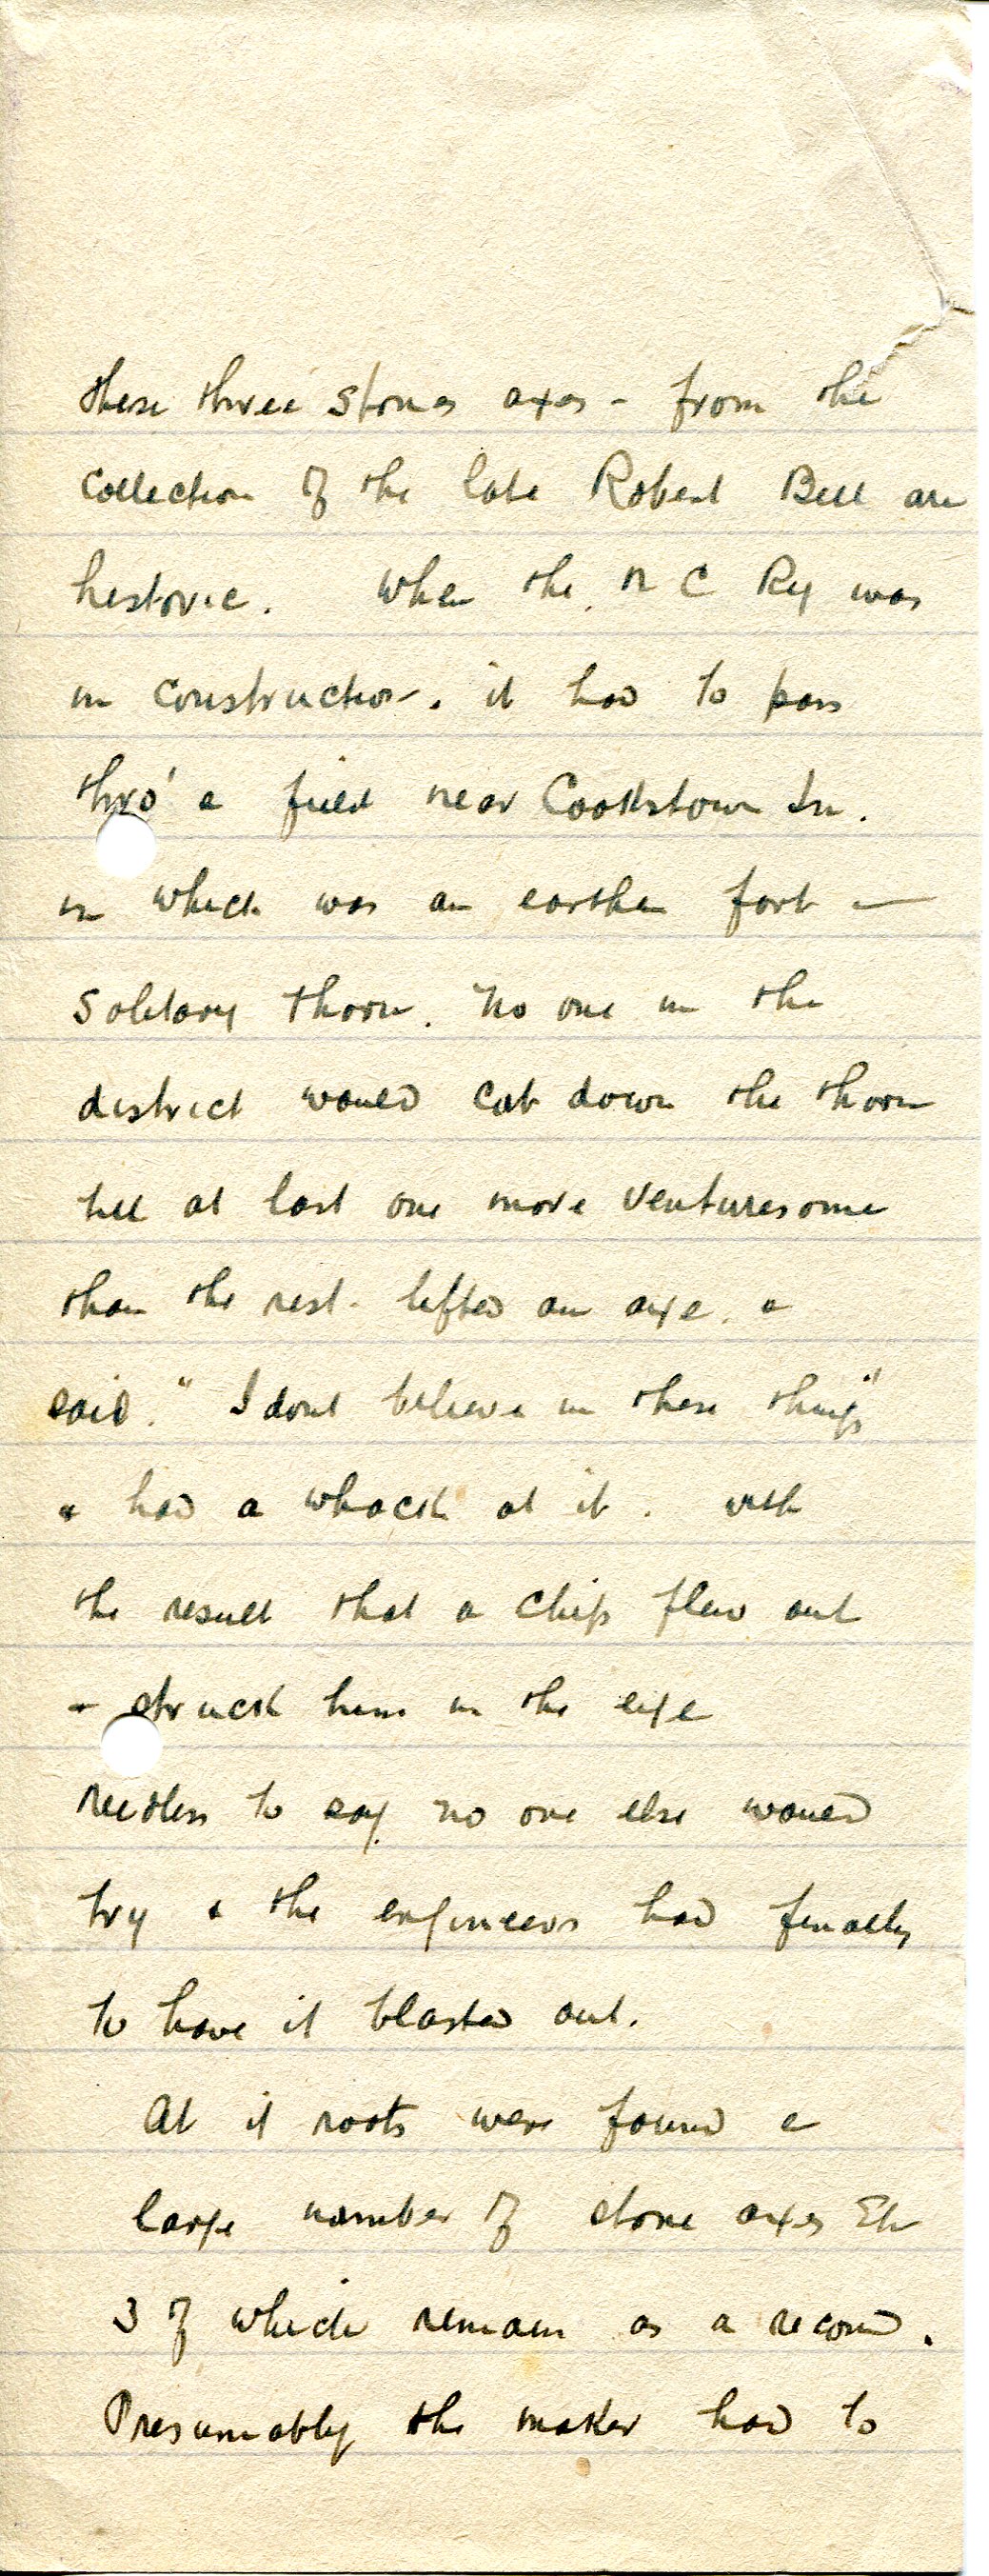 these three stones axes - from the
collection of the late Robert Bell are
historic. When the N C Ry was
in construction. it had to pass
thro' a field near Cookstown Jn.
in which was an earthen fort -
solitary thorn. No one in the
district would cut down the thorn
till at last one more venturesome
than the rest - lifted an axe. &
said. "I dont believe in these things"
& had a whack at it. with
the result that a chip flew out
& struck him in the eye
needless to say no one else would
try & the engineers had finally
to have it blasted out.
At it roots were found a
large number of stone axes Etc
3 of which remain as a record.
Presumably the maker had to